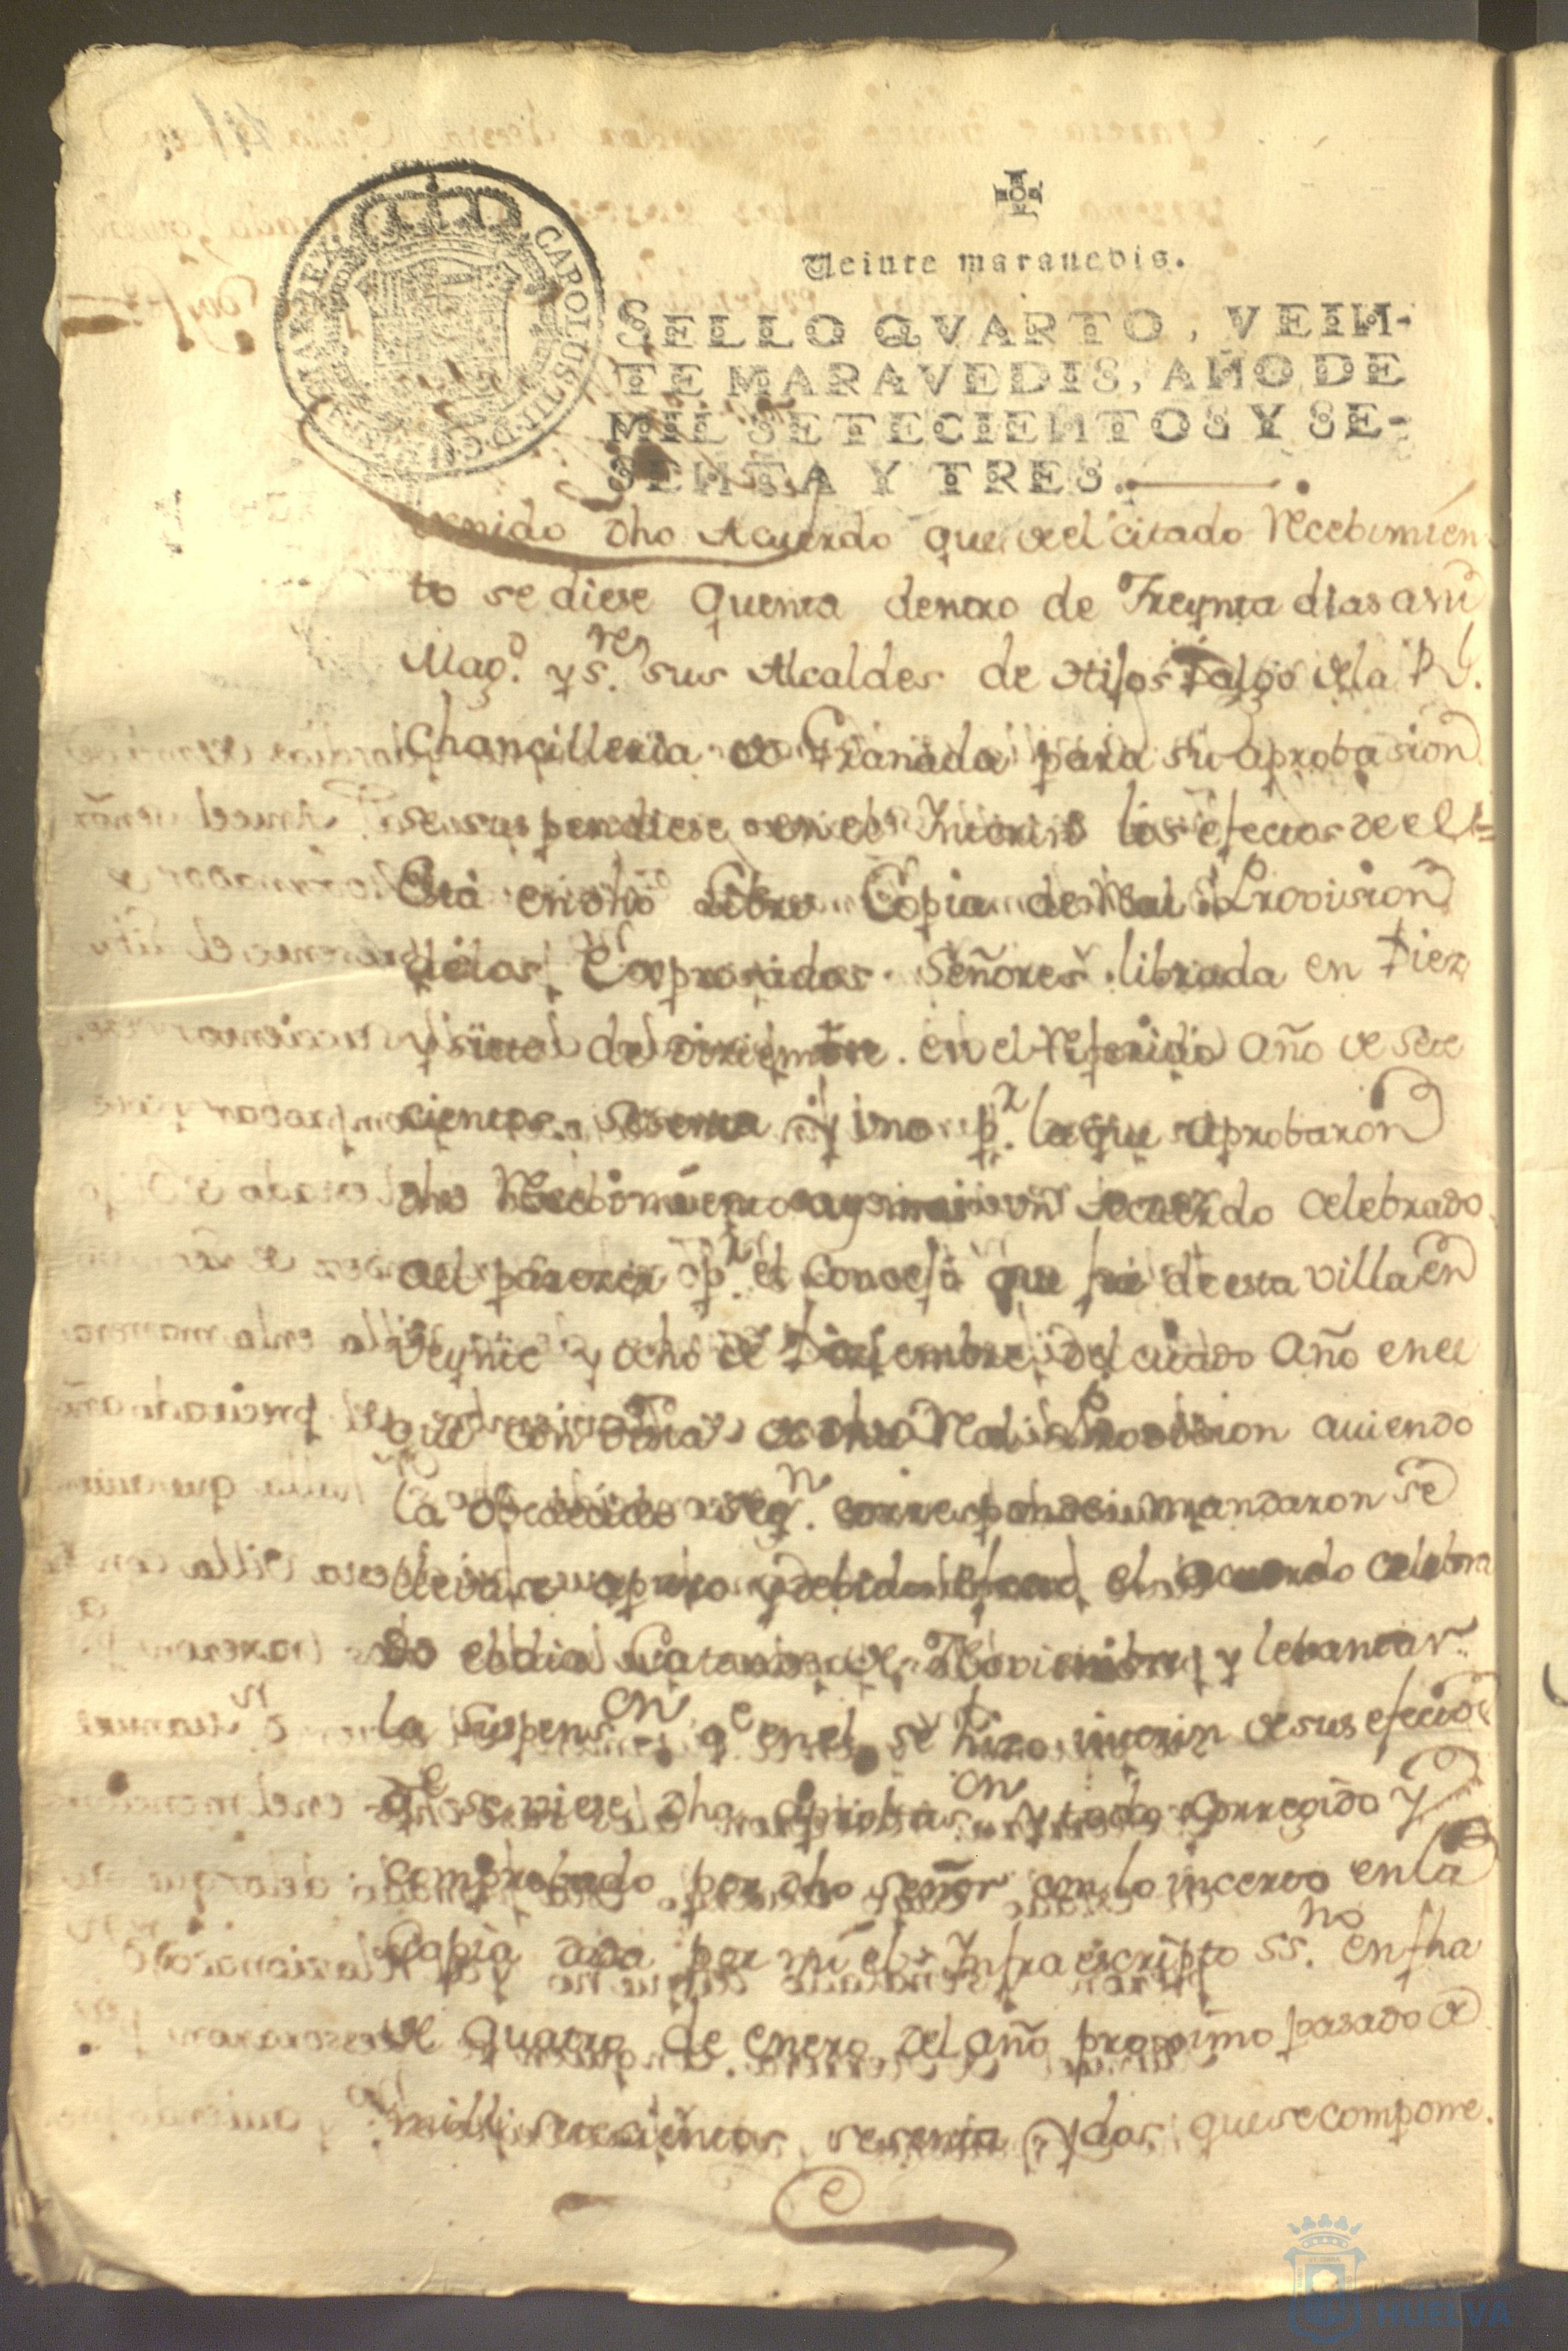 CAROLUS III D G HISPANIAR REX
Veinte maravedis.
SELLO QVARTO, VEIN-
TE MARAVEDIS, AÑO DE
MIL SETECIENTOS Y SE-
SENTA Y TRES.
venido dho Acuerdo que del citado Recebimien
to se diese quenta dentro de Treynta dias a su
Mag.d y S.res sus Alcaldes de Hijos Dalgo de la Rl.
Chancilleria de Granada para su aprobasion
se suspendiese en el Interin los efectos de el =
Está en dho Libro Copia de Real Provision
de los Expresados Señores librada en Diez
y siete de Diziembre en el Referido año de sete
cientos sesenta y uno p.r la que aprobaron
dho Recebimiento y asimismo acuerdo celebrado
al parezer p.r el Concejo que fue de esta villa en
Veynte y ocho de Diziembre del citado Año en el
que con vista de dha Real Provision auiendo
la Obedecido seg.n correspondia mandaron se
llevase a puro y debido efecto el acuerdo celebra
do el dia Catorse de Noviembre y lebantar
la Suspens.on q.e en el se hizo interin de sus efectos
q.e se viese dha aprobas.on y todo corregido y
comprobado por dho señor con lo incerto en la
Copia dada por mi el Infraescripto SS.no en fha
de quatro de enero del año proximo pasado de
mill setecientos sesenta y dos, que se compone.
HUELVA